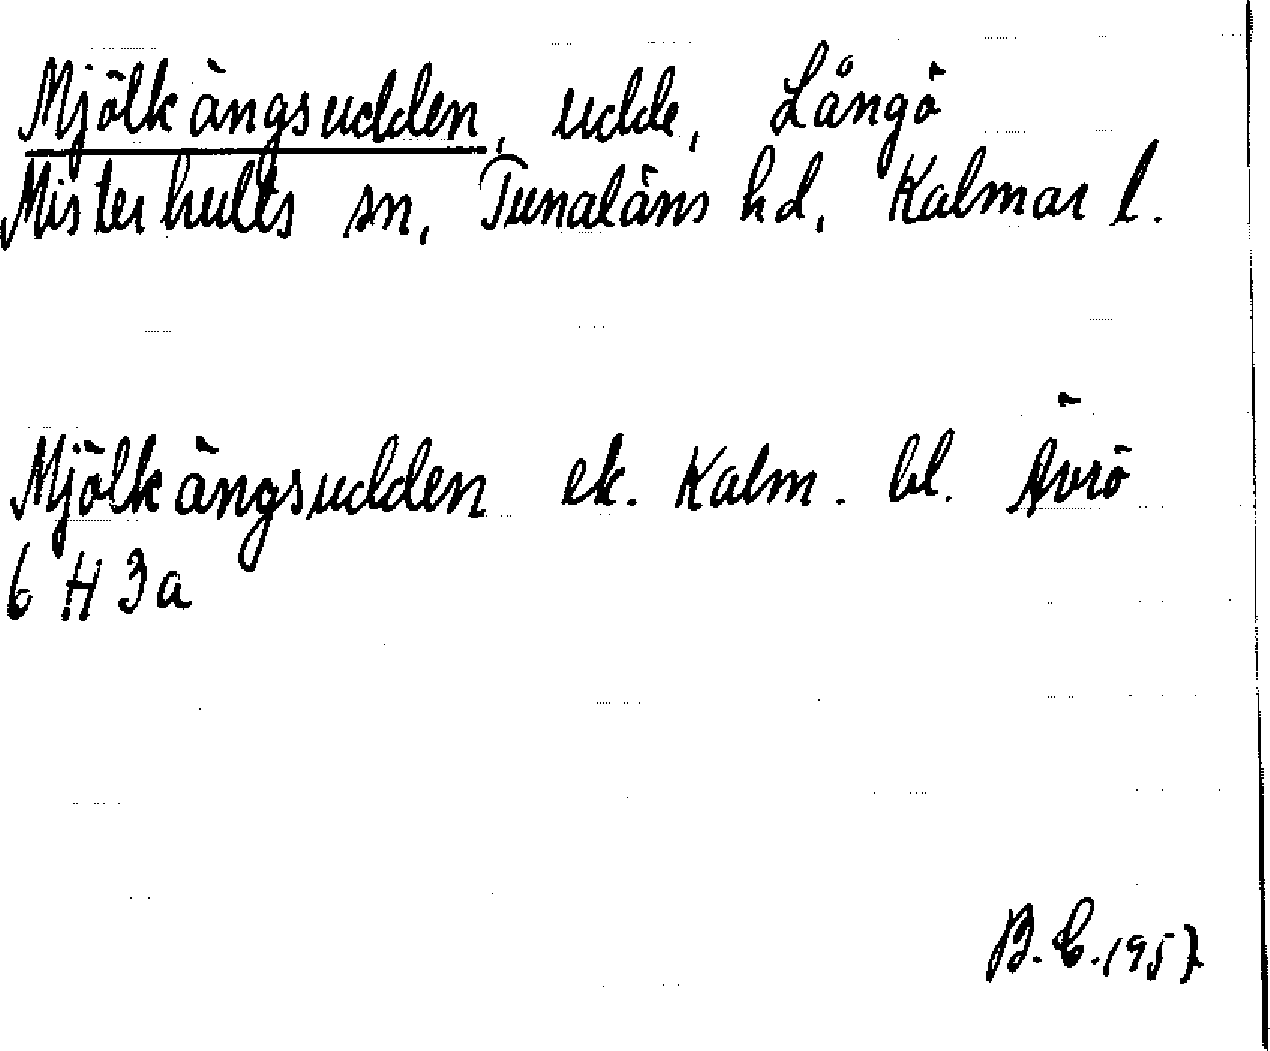 Mjölkängsudden, udde, Långö
Misterhults sn, Tunaläns hd, Kalmar l.
Mjölkängsudden ek. Kalm. bl. Ävrö
6 H 3a
B.C. 1957